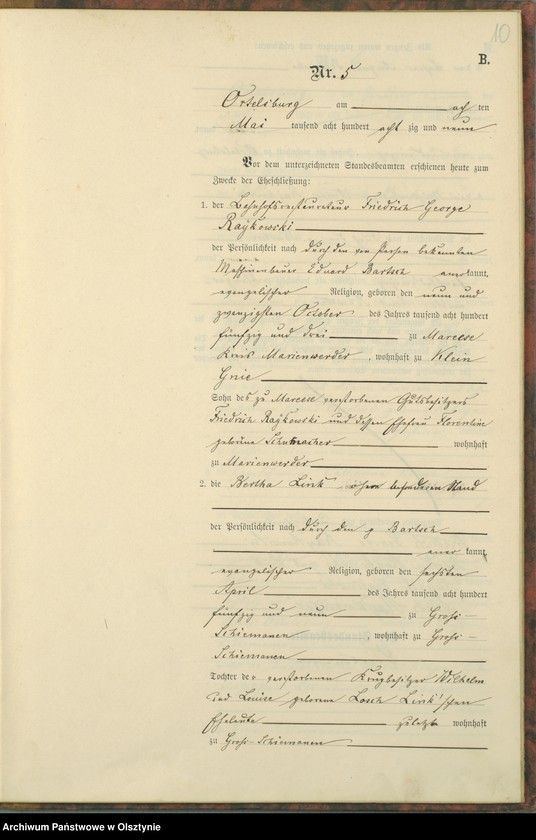 10
B.
Nr. 5
Ortelsburg am acht ten
Mai tausend acht hundert achtzig und neun
Vor dem unterzeichneten Standesbeamten erschienen heute zum
Zwecke der Eheschließung:
1. der Bahnhofsrestaurateur Friedrich George
Raykowski
der Persönlichkeit nach durch den von Person bekannten
Maschinenbauer Eduard Bartsch anerkannt,
evangelischer Religion, geboren den neun und
zwanzigsten October des Jahres tausend acht hundert
fünfzig und drei zu Mareese
Kreis Marienwerder, wohnhaft zu Klein
Gnie
Sohn des zu Mareese verstorbenen Gutsbesitzers
Friedrich Raykowski und dessen Ehefrau Florentine
geborene Schuhmacher wohnhaft
zu Marienwerder
2. die Bertha Link ohne besonderen Stand
der Persönlichkeit nach durch den p Bartsch
aner kannt,
evangelischer Religion, geboren den sechsten
April des Jahres tausend acht hundert
fünfzig und neun zu Groß-
Schiemanen, wohnhaft zu Groß-
Schiemanen
Tochter der verstorbenen Krugbesitzer Wilhelm
und Louise geborene Losch Link'schen
Eheleute zuletzt wohnhaft
zu Groß-Schiemanen
Archiwum Państwowe w Olsztynie